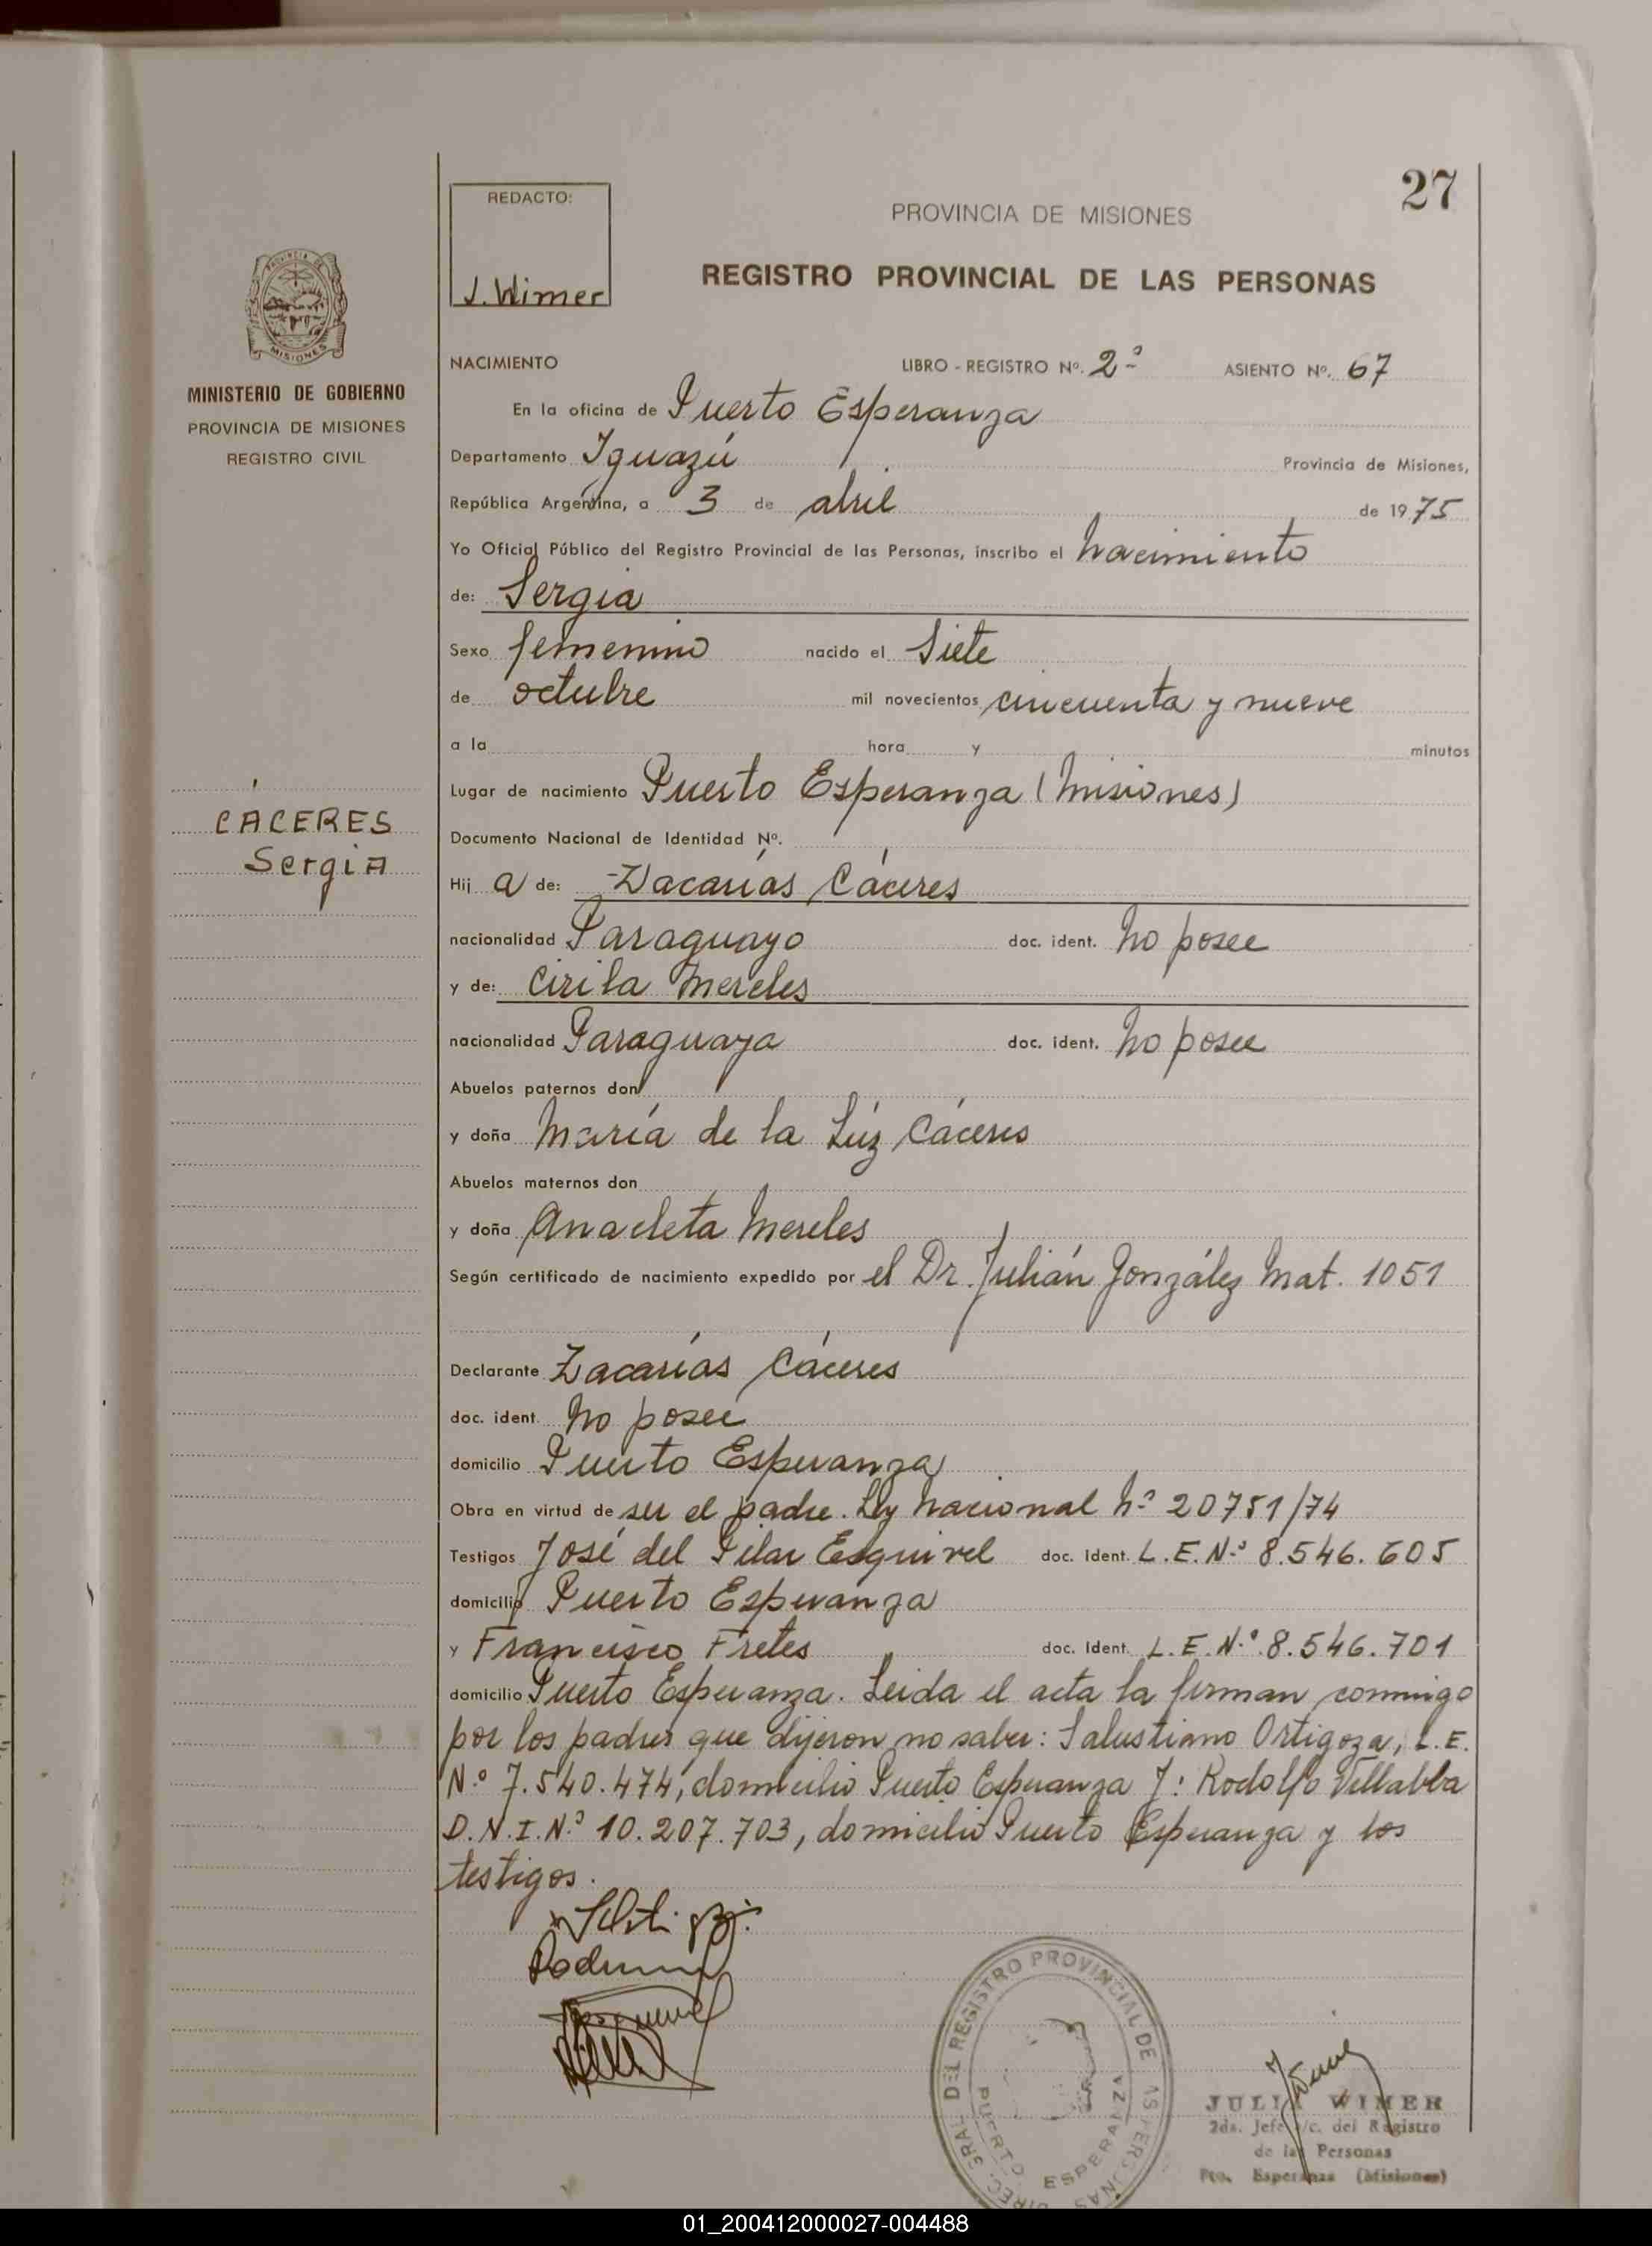 27
REDACTO:
J. Wimer
PROVINCIA DE MISIONES
REGISTRO PROVINCIAL DE LAS PERSONAS
PROVINCIA DE
MISIONES
MINISTERIO DE GOBIERNO
PROVINCIA DE MISIONES
REGISTRO CIVIL
CÁCERES
Sergia
NACIMIENTO LIBRO - REGISTRO Nº. 2º ASIENTO Nº. 67
En la oficina de Puerto Esperanza
Departamento Iguazú Provincia de Misiones,
República Argentina, a 3 de abril de 1975
Yo Oficial Público del Registro Provincial de las Personas, inscribo el nacimiento
de: Sergia
Sexo femenino nacido el Siete
de octubre mil novecientos cincuenta y nueve
a la hora y minutos
Lugar de nacimiento Puerto Esperanza (Misiones)
Documento Nacional de Identidad Nº.
Hij a de: Zacarías Cáceres
nacionalidad Paraguayo doc. ident. No posee
y de: Cirila Mereles
nacionalidad Paraguaya doc. ident. No posee
Abuelos paternos don
y doña María de la Lúz Cáceres
Abuelos maternos don
y doña Anacleta Mereles
Según certificado de nacimiento expedido por el Dr. Julián González Mat. 1051
Declarante Zacarías Cáceres
doc. ident. No posee
domicilio Puerto Esperanza
Obra en virtud de ser el padre. Ley Nacional Nº 20751/74
Testigos José del Pilar Esquivel doc. Ident. L.E.Nº 8.546.605
domicilio Puerto Esperanza
y Francisco Fretes doc. Ident. L.E.Nº 8.546.701
domicilio Puerto Esperanza. Leida el acta la firman conmigo
por los padres que dijeron no saber: Salustiano Ortigoza, L.E.
Nº 7.540.474, domicilio Puerto Esperanza y: Rodolfo Villalba
D.N.I.Nº 10.207.703, domicilio Puerto Esperanza y los
testigos.
DIREC. GRAL. DEL REGISTRO PROVINCIAL DE LAS PERSONAS
PUERTO ESPERANZA
JULIA WIMER
2da. Jefe a/c. del Registro
de las Personas
Pto. Esperanza (Misiones)
01_200412000027-004488